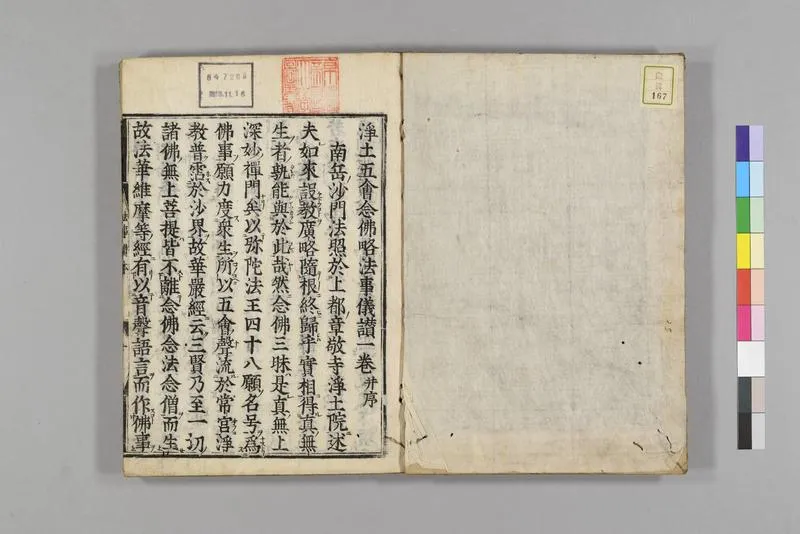 淨土五會念佛略法事儀讃一卷并序
南岳沙門法照於上都章敬寺淨土院述
夫如來設教廣略隨根終歸乎實相得真無
生者孰能與於此哉然念佛三昧是真無上
深妙禪門矣以弥陀法王四十八願名号爲
佛事願力度衆生所以五會聲流於常宮淨
教普霑於沙界故華嚴經云三賢乃至一切
諸佛無上菩提皆不離念佛念法念僧而生
故法華維摩等經有以音聲語言而作佛事
167